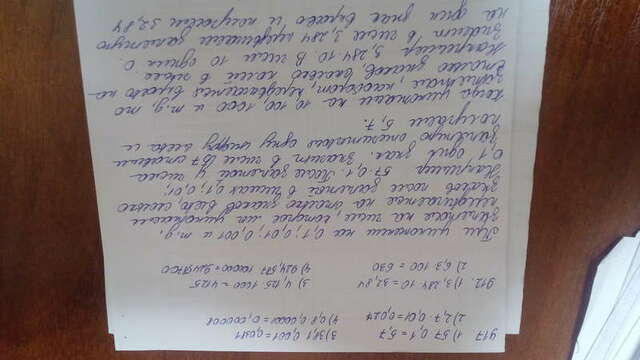 917. 1) 57·0,1 = 5,7 3) 38,1·0,001 = 0,0381
2) 2,7·0,01 = 0,027 4) 0,8·0,00001 = 0,000008
912. 1) 3,284·10 = 32,84 3) 4,125·1000 = 4125
2) 6,3·100 = 630 4) 924,587·100000 = 92458700
При умножении на 0,1; 0,01; 0,001 и т.д.
запятая на числе, которое мы умножаем
передвигается на столько знаков влево, сколько
знаков после запятой в числах 0,1; 0,01;
Например 57·0,1. После запятой у числа
0,1 один знак. Значит в числе 57 ставим
запятую отсчитывая одну цифру влево и
получаем 5,7.
Когда умножаем на 10, 100, 1000 и т.д, то
запятая, наоборот, передвигается вправо на
столько знаков, сколько нолей в числе.
Например 3,284·10. В числе 10 один 0.
Значит в числе 3,284 передвигаем запятую
на один знак вправо и получаем 32,84